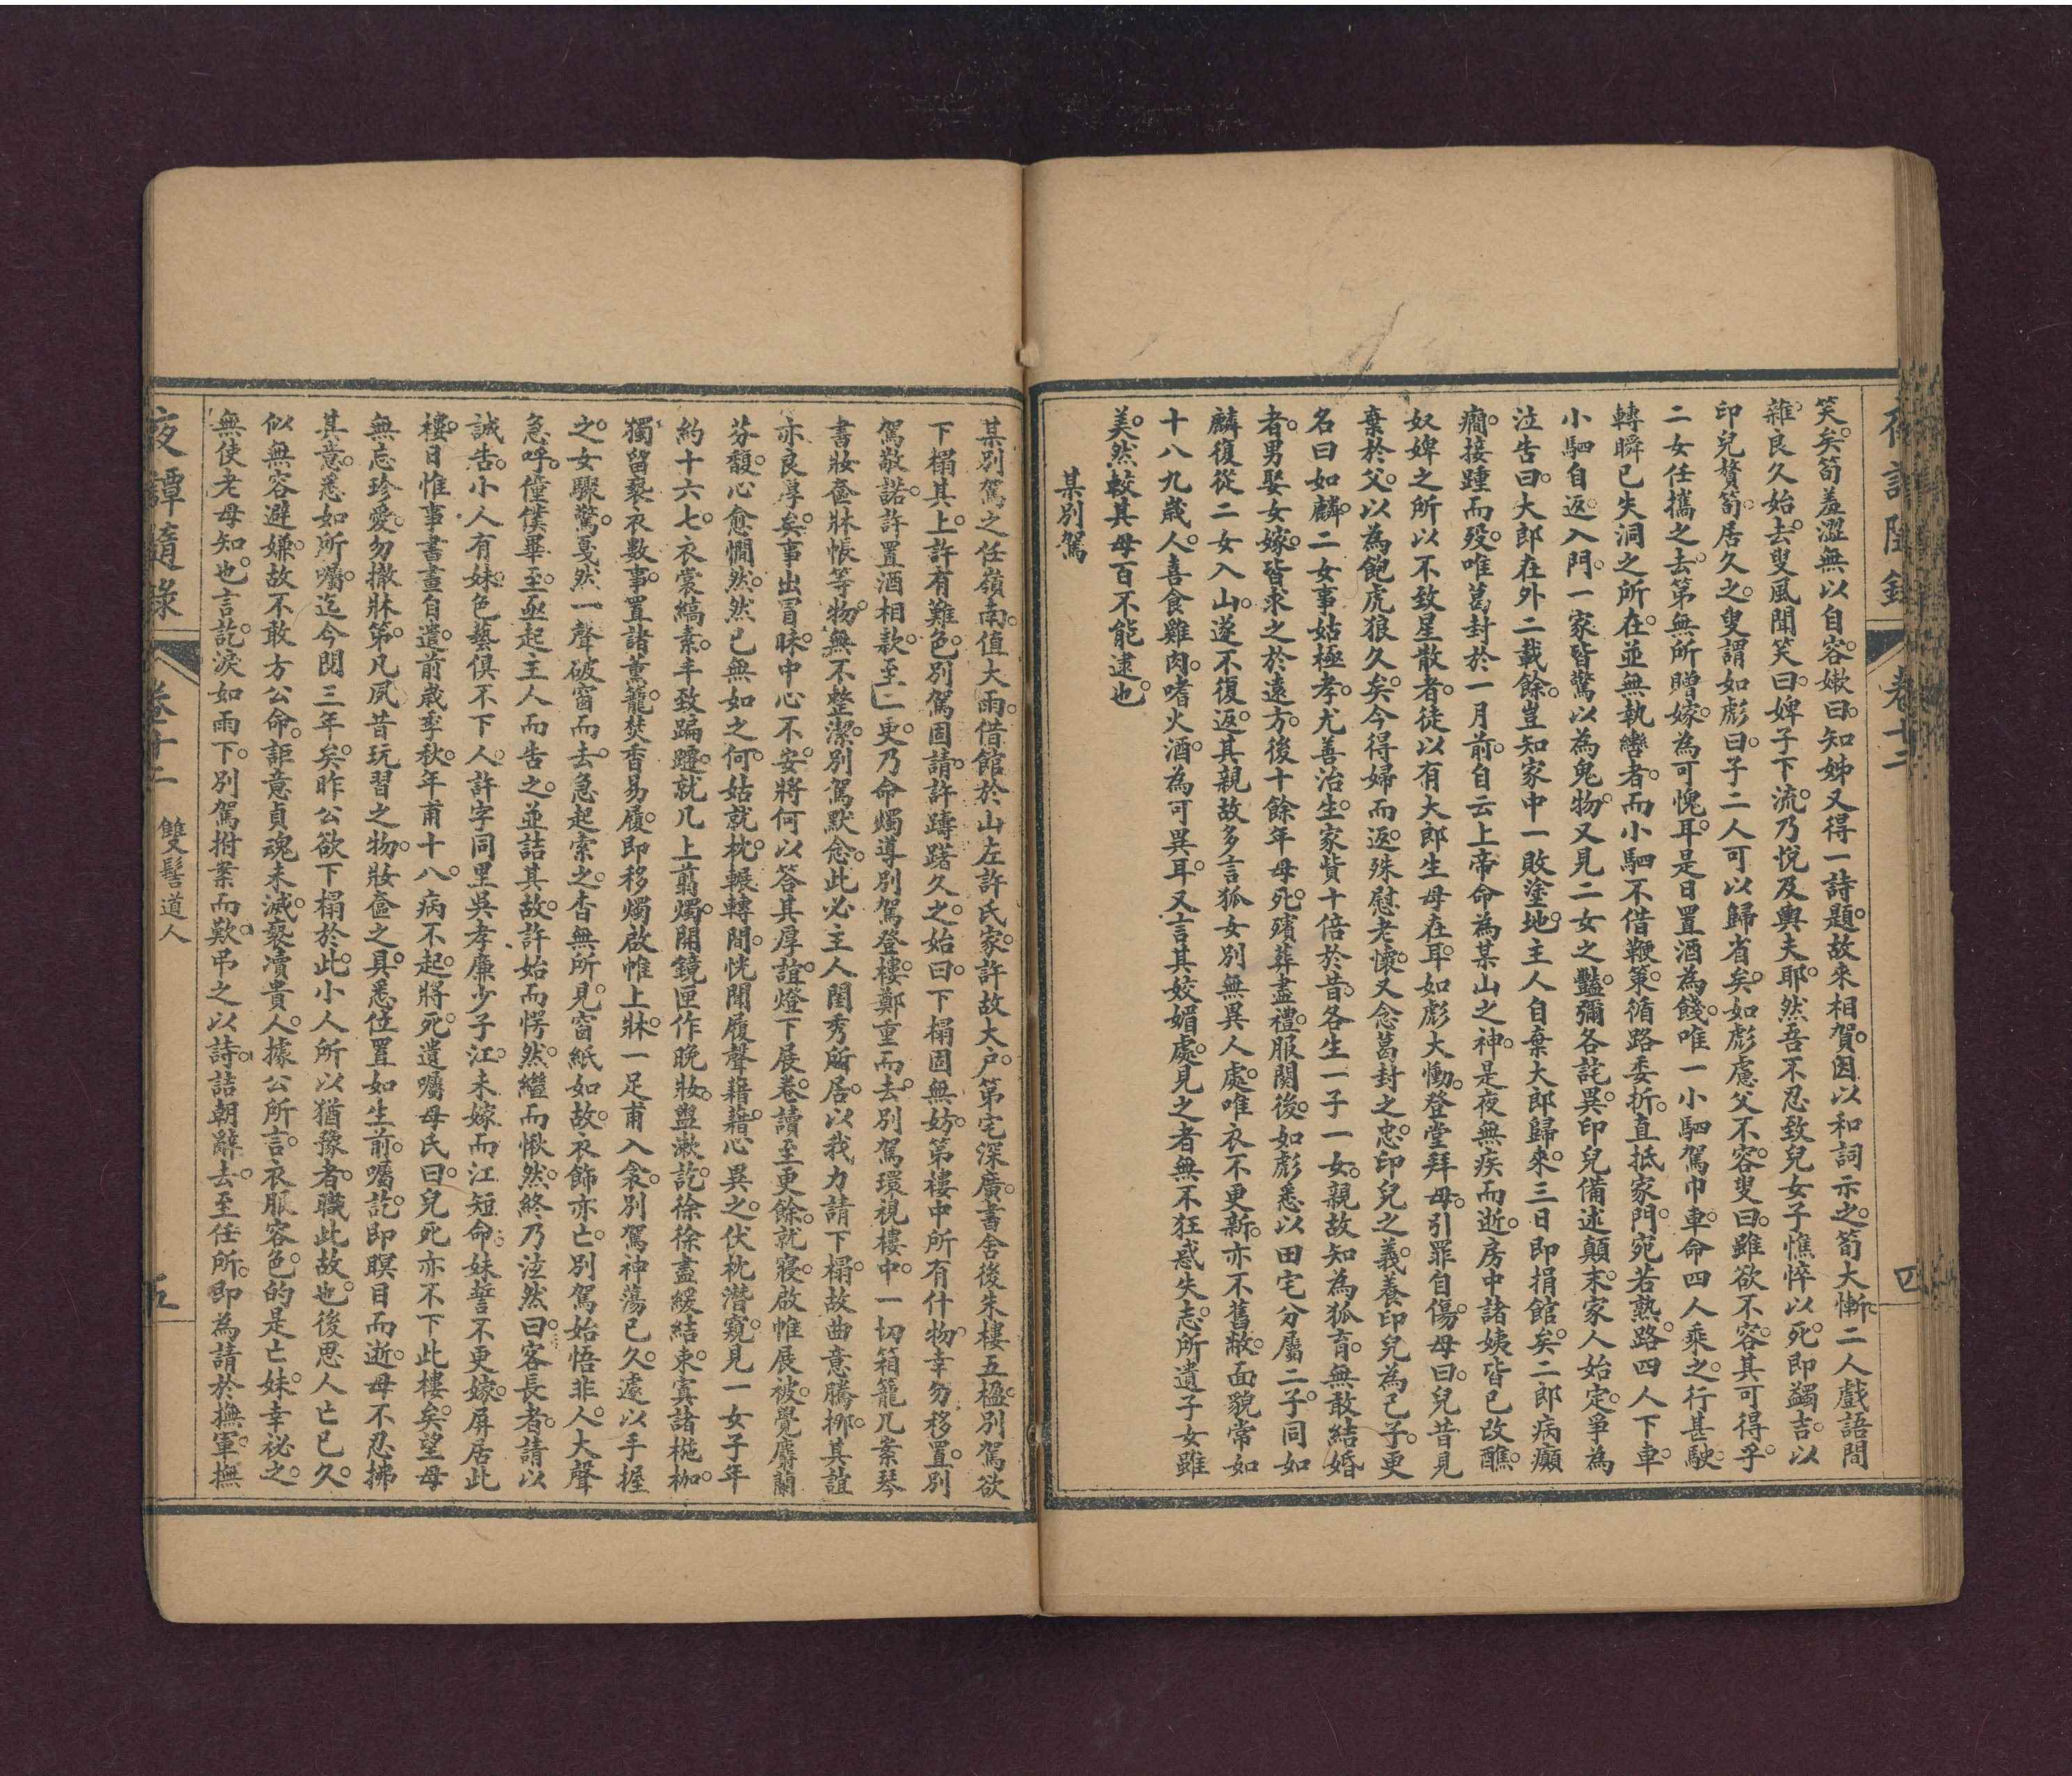 夜譚隨錄
卷十二
四
笑矣。筍羞澀無以自容。嫩曰。知姊又得一詩題。故來相賀。因以和詞示之。筍大慚。二人戲語間
雜。良久始去。叟風聞笑曰。婢子下流。乃悅及輿夫耶。然吾不忍致兒女子憔悴以死。即蠲吉。以
印兒贅筍。居久之。叟謂如彪曰。子二人可以歸省矣。如彪慮父不容。叟曰。雖欲不容。其可得乎。
二女任攜之去。第無所贈嫁。為可愧耳。是日置酒為餞。唯一小駟駕巾車。命四人乘之。行甚駛。
轉瞬已失洞之所在。並無執轡者。而小駟不借鞭策。循路委折。直抵家門。宛若熟路。四人下車。
小駟自返。入門。一家皆驚以為鬼物。又見二女之豔。彌各詫異。印兒備述顛末。家人始定。爭為
泣告曰。大郎在外二載餘。豈知家中一敗塗地。主人自棄大郎歸來。三日即捐館矣。二郎病癲
癇。接踵而歿。唯葛封於一月前。自云上帝命為某山之神。是夜無疾而逝。房中諸姨皆已改醮。
奴婢之所以不致星散者。徒以有大郎生母在耳。如彪大慟。登堂拜母。引罪自傷。母曰。兒昔見
棄於父。以為飽虎狼久矣。今得婦而返。殊慰老懷。又念葛封之忠。印兒之義。養印兒為己子。更
名曰如麟。二女事姑極孝。尤善治生。家貲十倍於昔。各生一子一女。親故知為狐育。無敢結婚
者。男娶女嫁。皆求之於遠方。後十餘年母死。殯葬盡禮。服闋後。如彪悉以田宅分屬二子。同如
麟復從二女入山。遂不復返。其親故多言狐女別無異人處。唯衣不更新。亦不舊敝。面貌常如
十八九歲人。喜食雞肉。嗜火酒。為可異耳。又言其姣媚處。見之者無不狂惑失志。所遺子女雖
美。然較其母百不能逮也。
某別駕
某別駕之任嶺南。值大雨。借館於山左許氏家。許故大戶。第宅深廣。書舍後朱樓五楹。別駕欲
下榻其上。許有難色。別駕固請。許躊躇久之。始曰。下榻固無妨。第樓中所有什物。幸勿移置。別
駕敬諾。許置酒相款。至二更。乃命燭導別駕登樓。鄭重而去。別駕環視樓中。一切箱籠几案琴
書妝奩牀帳等物。無不整潔。別駕默念。此必主人閨秀所居。以我力請下榻。故曲意騰挪。其誼
亦良厚矣。事出冒昧。中心不安。將何以答其厚誼。燈下展卷。讀至更餘。就寢。啟帷展被。覺麝蘭
芬馥。心愈憪然。然已無如之何。姑就枕。輾轉間。恍聞履聲藉藉。心異之。伏枕潛窺。見一女子年
約十六七。衣裳縞素。丰致蹁躚。就几上翦燭。開鏡匣作晚妝。盥漱訖。徐徐盡緩結束。寘諸椸枷。
獨留褻衣數事。置諸薰籠。焚香易履。即移燭啟帷上牀。一足甫入衾。別駕神蕩已久。遽以手握
之。女驟驚。戛然一聲。破窗而去。急起索之。杳無所見。窗紙如故。衣飾亦亡。別駕始悟非人。大聲
急呼。僮僕畢至。亟起主人而告之。並詰其故。許始而愕然。繼而愀然。終乃泫然曰。客長者。請以
誠告。小人有妹。色藝俱不下人。許字同里吳孝廉少子江。未嫁而江短命。妹誓不更嫁。屏居此
樓。日惟事書畫自遣。前歲季秋。年甫十八。病不起。將死。遺囑母氏曰。兒死亦不下此樓矣。望母
無忘珍愛。勿撤牀笫。凡夙昔玩習之物。妝奩之具。悉位置如生前。囑訖。即瞑目而逝。母不忍拂
其意。悉如所囑。迄今閱三年矣。昨公欲下榻於此。小人所以猶豫者。職此故也。後思人亡已久。
似無容避嫌。故不敢方公命。詎意貞魂未滅。褻瀆貴人。據公所言。衣服容色。的是亡妹。幸祕之。
無使老母知也。言訖。淚如雨下。別駕拊案而歎。弔之以詩。詰朝辭去。至任所。即為請於撫軍。撫
夜譚隨錄
卷十二
雙髻道人
五